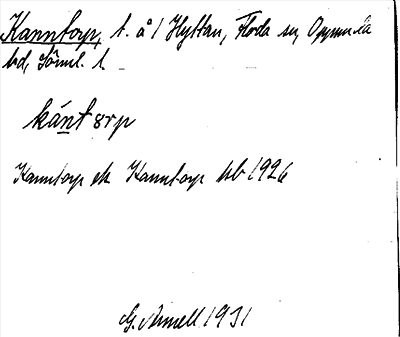 Kanntorp, t. å 1 Hyttan, Floda sn, Oppunda
hd, Söml. l.
kánt orp
Kanntorp ek Kanntorp kb 1926
G. Ärnell 1931